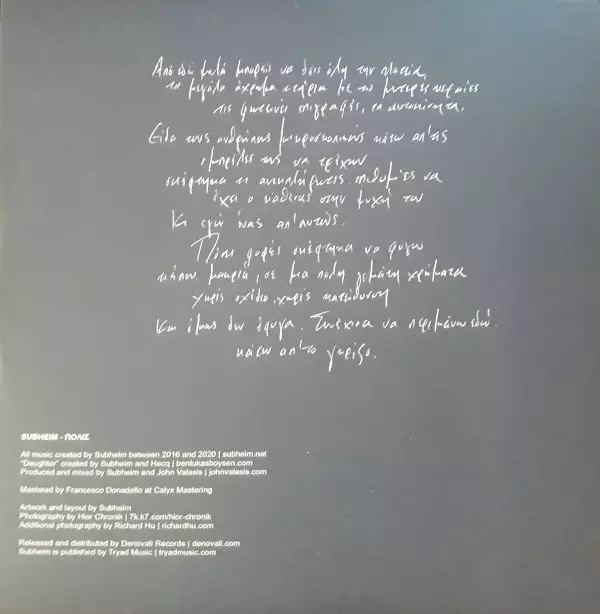 Από εδώ ψηλά μπορείς να δεις όλη την πλατεία,
τα μεγάλα άχρωμα κτήρια με τις μαύρες κεραίες
τις φωτεινές επιγραφές, τα αυτοκίνητα.
Είδα τους ανθρώπους μικροσκοπικούς κάτω απ'τις
ομπρέλες τους να τρέχουν
σκέφτηκα τι ανεκπλήρωτες επιθυμίες να
έχει ο καθένας στην ψυχή του
Κι εγώ ένας απ'αυτούς.
Πόσες φορές σκέφτηκα να φύγω
κάπου μακριά, σε μια πόλη γεμάτη χρώματα
χωρίς σχέδιο, χωρίς κατεύθυνση
Και όμως δεν έφυγα. Συνέχισα να περιμένω εδώ.
κάτω απ'το γκρίζο.
SUBHEIM - ΠΟΛΙΣ
All music created by Subheim between 2016 and 2020 | subheim.net
"Daughter" created by Subheim and Hecq | benlukasboysen.com
Produced and mixed by Subheim and John Valasis | johnvalasis.com
Mastered by Francesco Donadello at Calyx Mastering
Artwork and layout by Subheim
Photography by Hior Chronik | 7k.k7.com/hior-chronik
Additional photography by Richard Hu | richardhu.com
Released and distributed by Denovali Records | denovali.com
Subheim is published by Tryad Music | tryadmusic.com